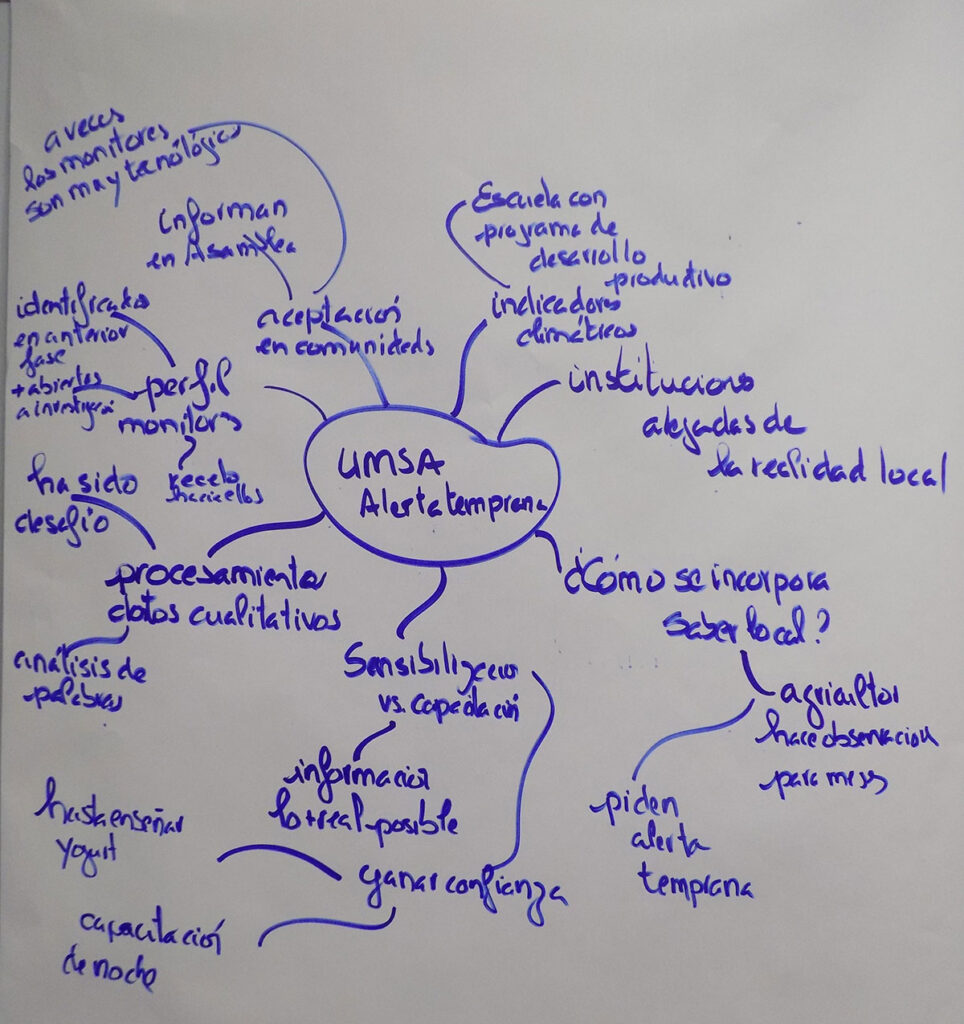 a veces
los monitores
son muy tecnológicos
informan
en Asamblea
aceptación
en comunidads
Escuela con
programa de
desarrollo
productivo
indicadores
climáticos
identificados
en anterior
fase
+ abiertos
a investigar
perfil
monitors
recelo
hacia ellos
instituciones
alejadas de
la realidad local
UMSA
Alerta temprana
ha sido
desafio
procesamiento
datos cualitativos
análisis de
palabras
¿Cómo se incorpora
saber local?
agricultor
hace observacion
para
piden
alerta
temprana
Sensibilizacion
vs. capacitación
informacion
lo + real posible
ganar confianza
hasta enseñar
yogurt
capacitación
de noche